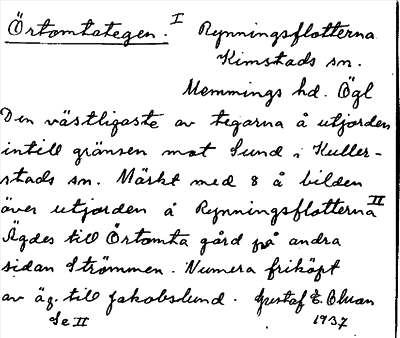 Örtomtategen. I Rynningsflotterna
Kimstads sn.
Memmings hd. Ögl
Den västligaste av tegarna å utjorden
intill gränsen mot Lund i Kuller-
stads sn. Märkt med 8 å bilden
över utjorden å Rynningsflotterna II
Ägdes till Örtomta gård på andra
sidan Strömmen. Numera friköpt
av äg. till Jakobslund. Gustaf E. Olsson
Se II 1937